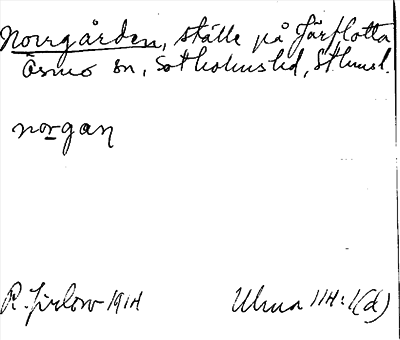 Norrgården, ställe på Järflotta
Ösmo sn, Sotholms hd, Sthmsl.
norgan
R. Jirlow 1914 Ulma 114:1(d)